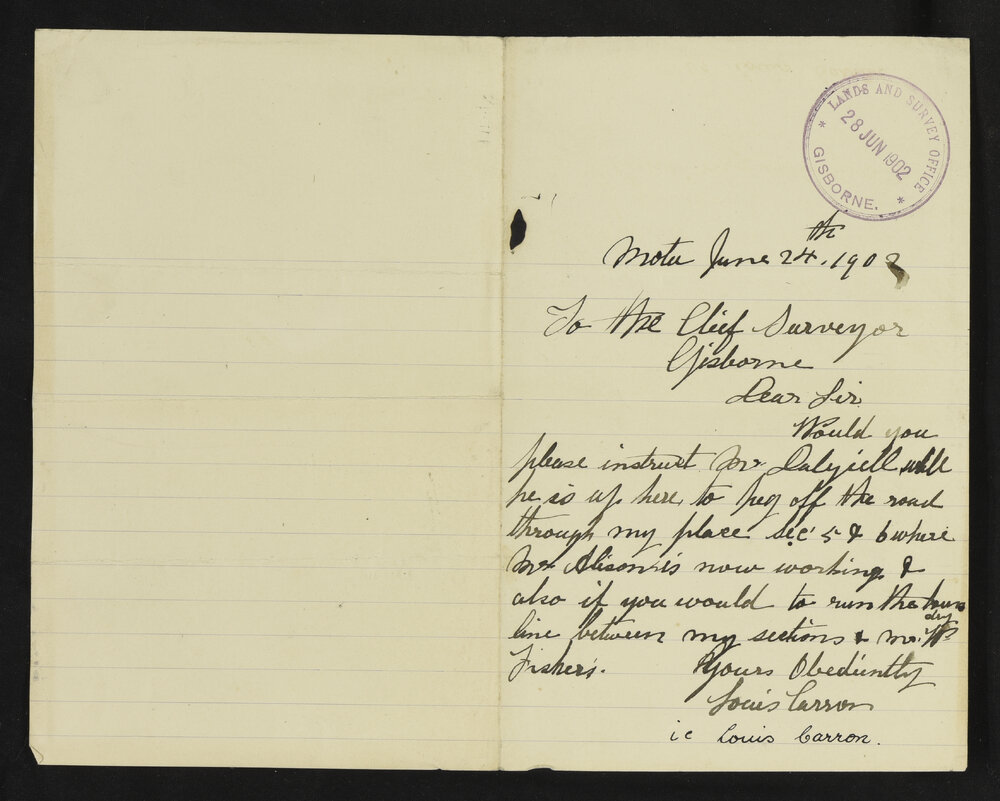 * LANDS AND SURVEY OFFICE *
28 JUN 1902
GISBORNE.
Motu June 24th. 1902
To the Cheif Surveyor
Gisborne
Dear Sir
Would you
please instruct Mr Dalziell while
he is up here to peg off the road
through my place sec 5 & 6 where
Mr Alison is now working &
also if you would to run the boun
dry
line between my sections & Mr. Wm
Fishers.
Yours Obediently
Louis Carron
ie Louis Carron.